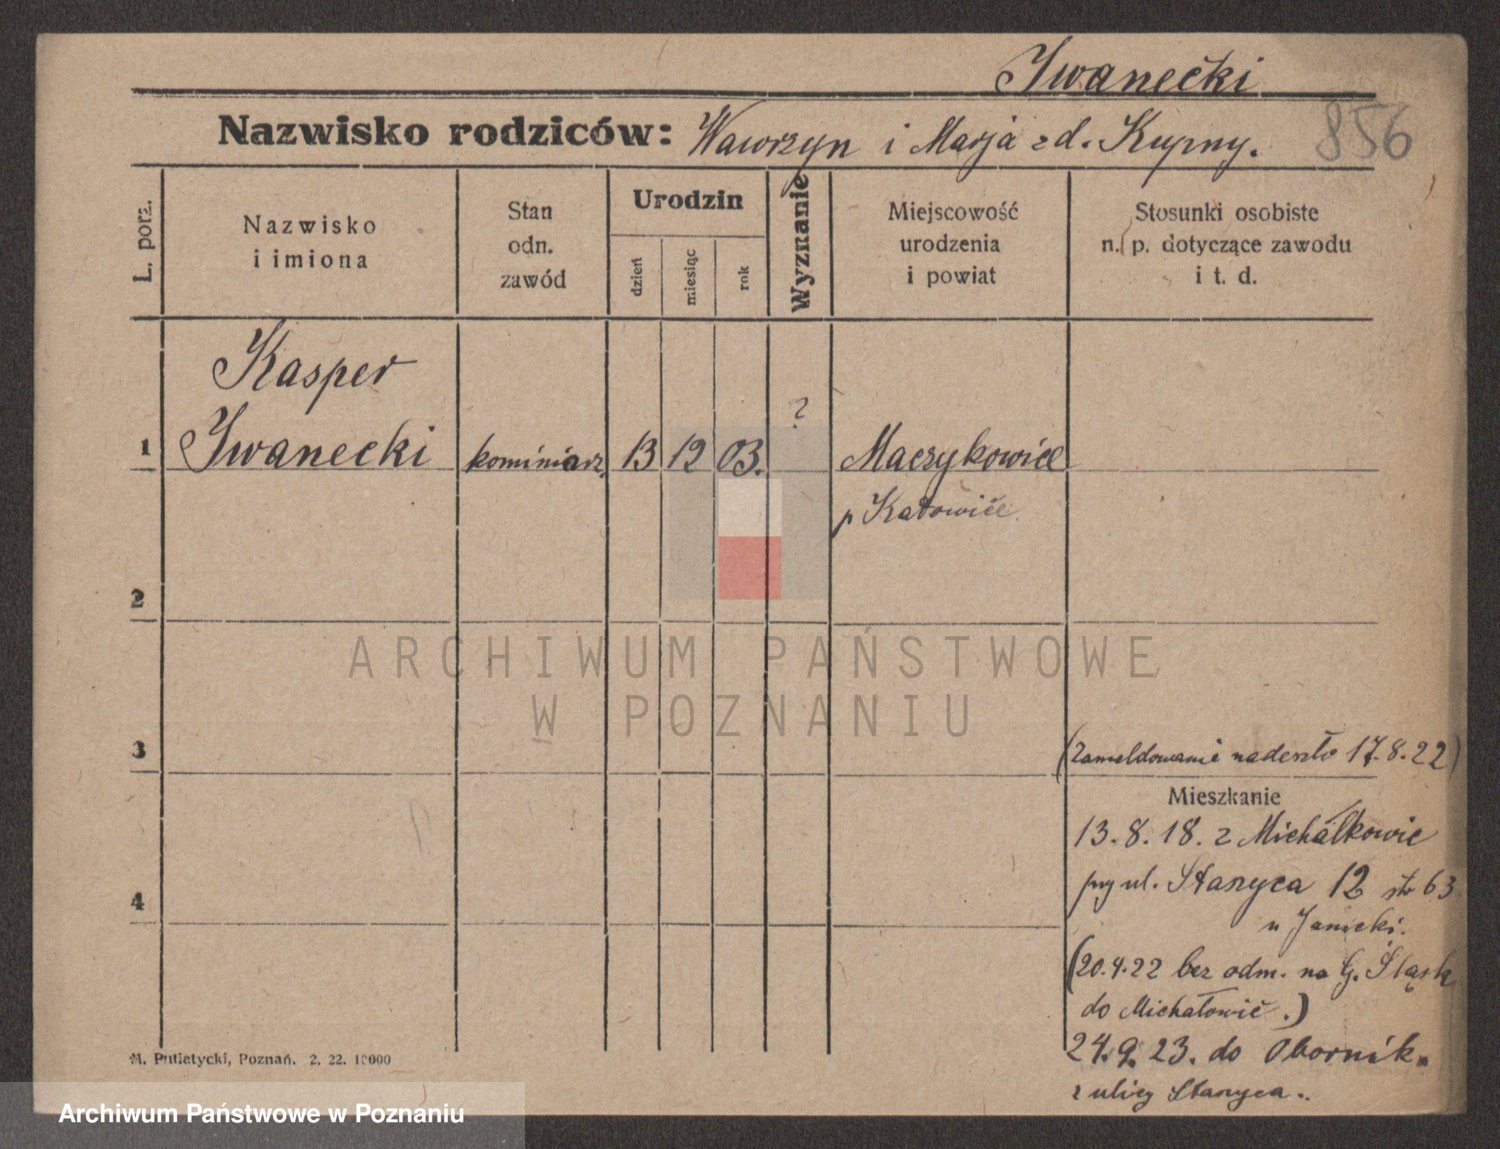 Iwanecki
Nazwisko rodziców: Wawrzyn i Marja z d. Kupny.
856
L. porz.
Nazwisko
i imiona
Stan
odn.
zawód
Urodzin
dzień
miesiąc
rok
Wyznanie
Miejscowość
urodzenia
i powiat
Stosunki osobiste
n. p. dotyczące zawodu
i t. d.
Kasper
1 Iwanecki kominiarz 13 12 03. ? Maczykowice
p Katowice
2
3
(Zameldowanie nadeszło 17.8.22)
Mieszkanie
13.8.18. z Michałkowic
przy ul. Stanyca 12 str 63
u Janecki.
4
(20.4.22 bez odm. na G. Śląsk
do Michałowic.)
24.9.23. do Obornik.
z ulicy Stanyca..
M. Putiatycki, Poznań. 2. 22. 10000
ARCHIWUM PAŃSTWOWE
W POZNANIU
Archiwum Państwowe w Poznaniu